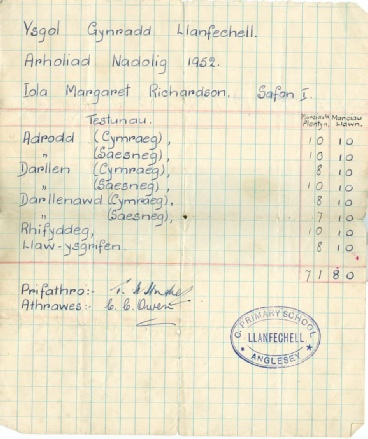 Ysgol Gynradd Llanfechell.
Arholiad Nadolig 1952.
Iola Margaret Richardson. Safon I.
Testunau. Marciau Plentyn. Marciau Llawn.
Adrodd (Cymraeg), 10 10
" (Saesneg), 10 10
Darllen (Cymraeg), 8 10
" (Saesneg), 10 10
Darllenawd (Cymraeg), 8 10
" (Saesneg), 7 10
Rhifyddeg, 10 10
Llaw-ysgrifen 8 10
71 80
Prifathro:-
Athrawes:- C. C. Owen
C. PRIMARY SCHOOL
LLANFECHELL
ANGLESEY